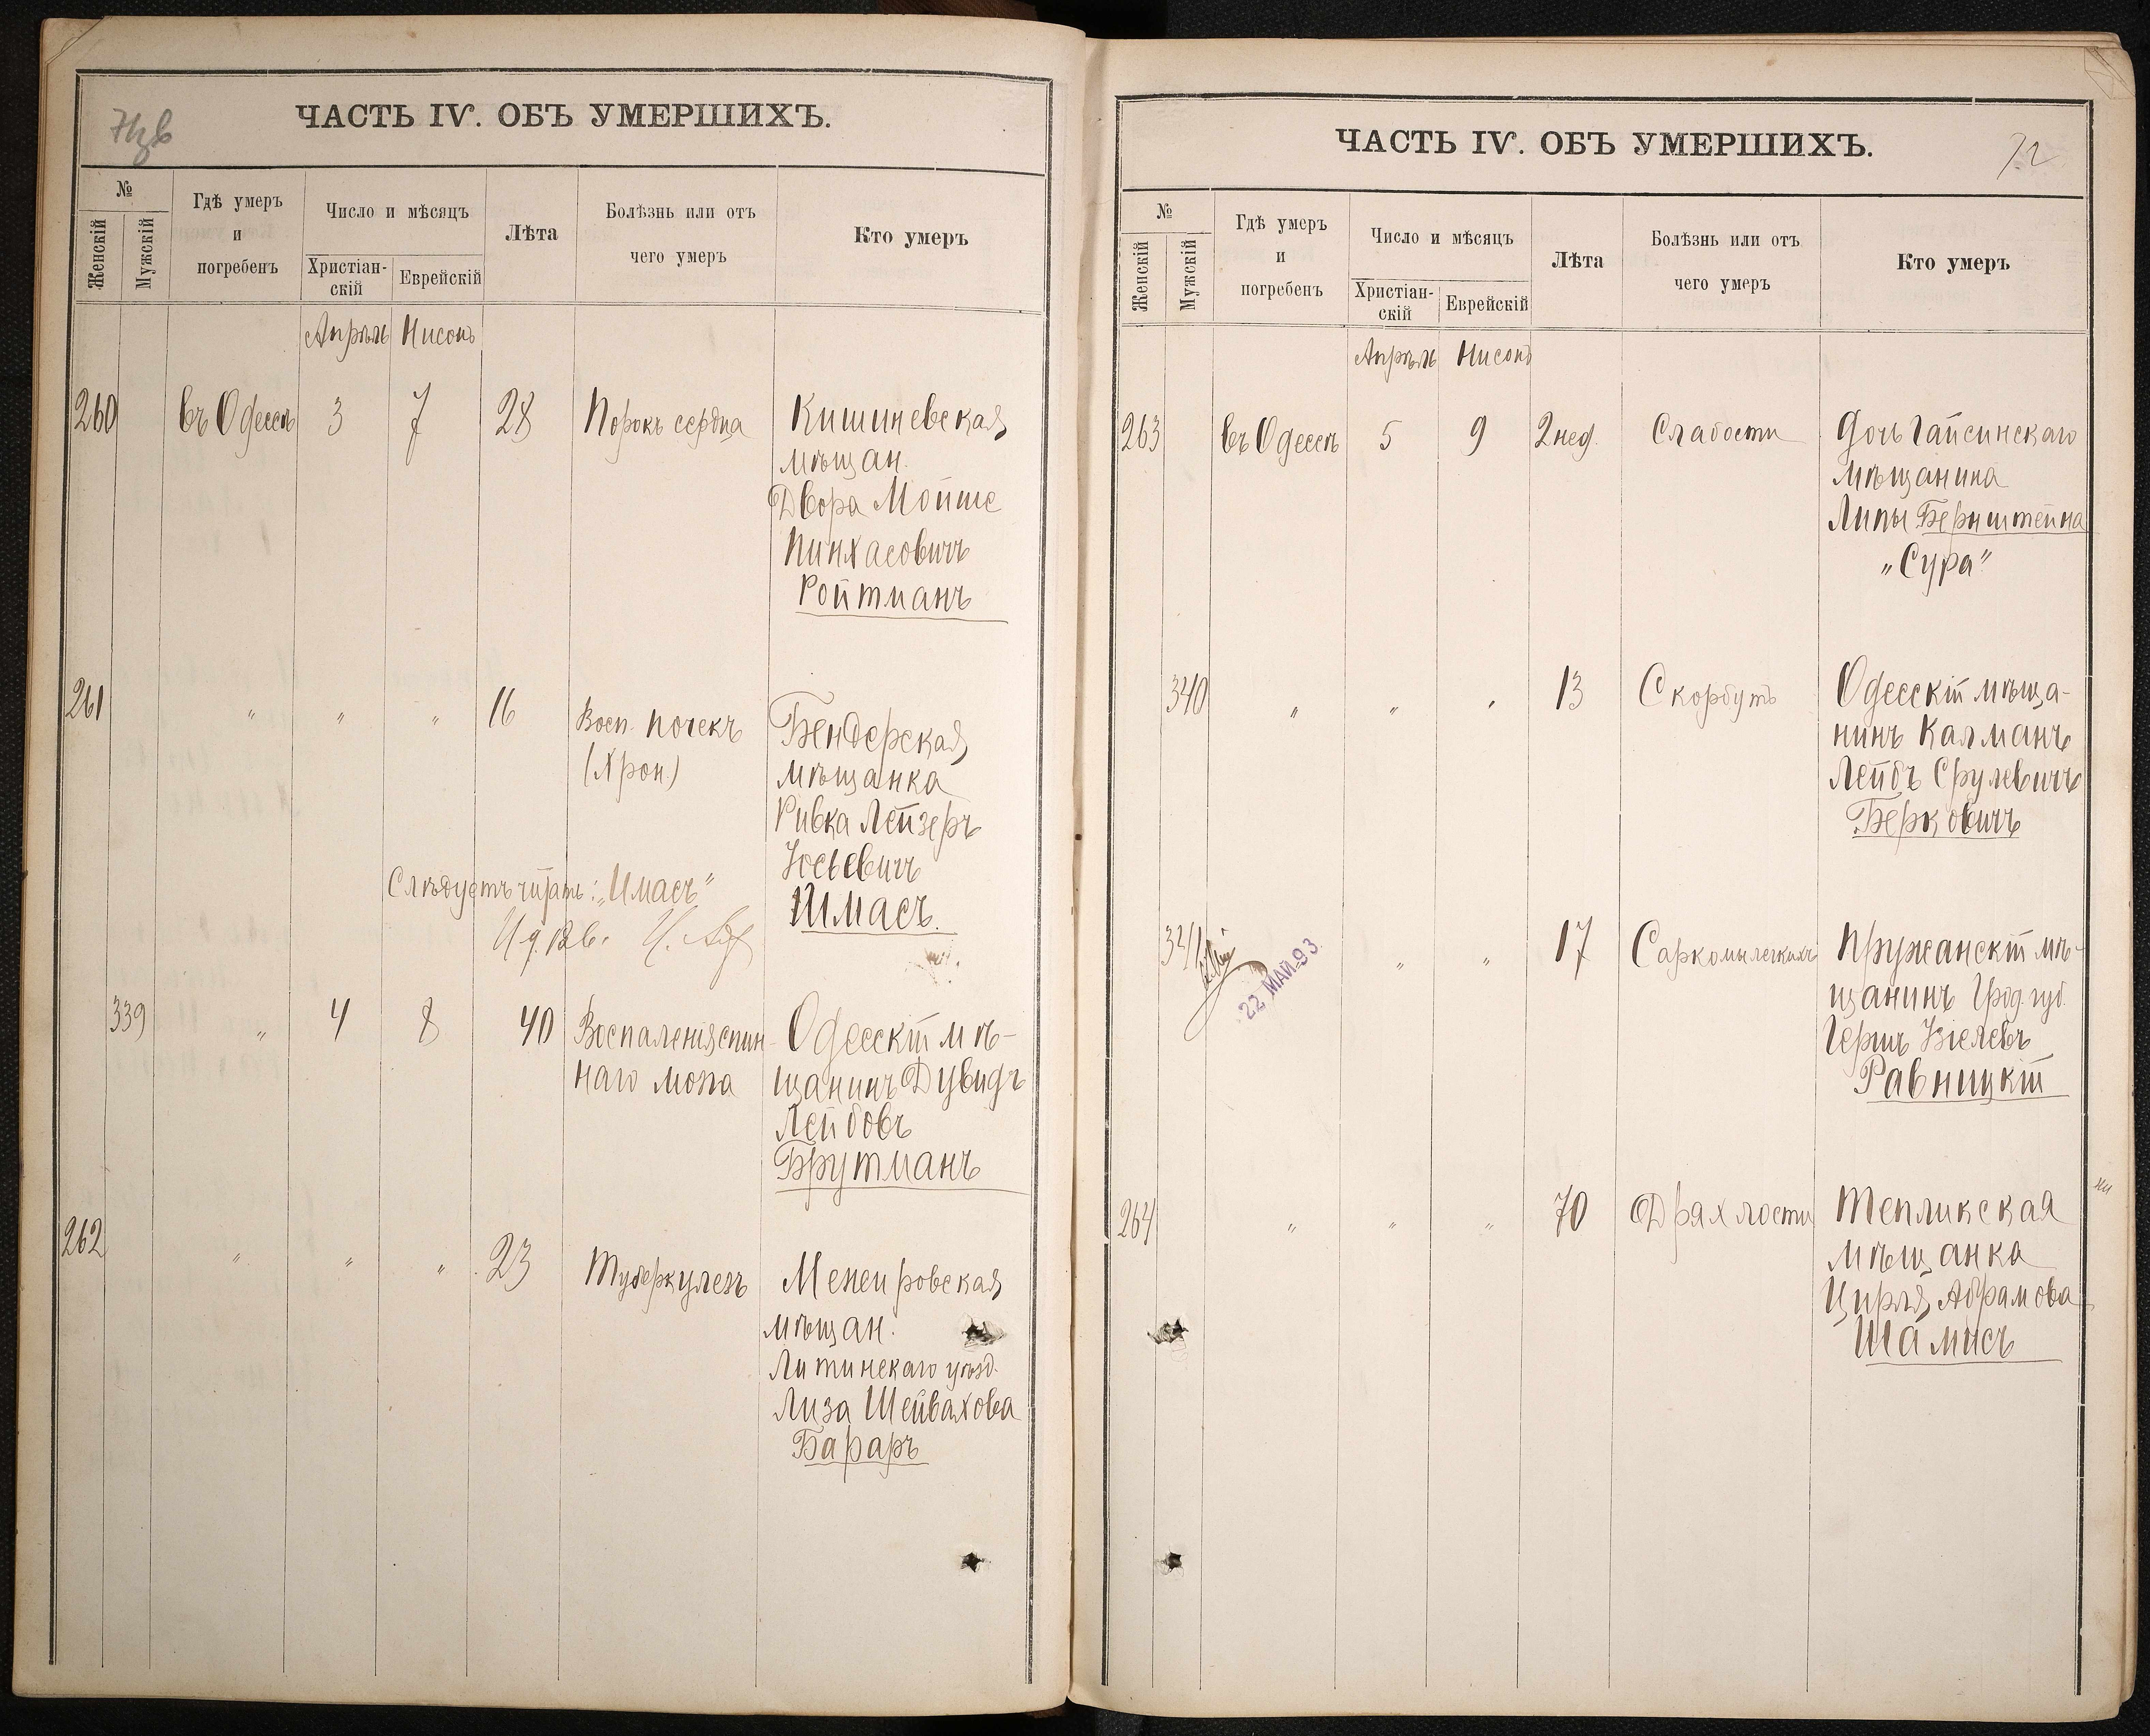 ЧАСТЬ IV. ОБЪ УМЕРШИХЪ.
№
Женскій
Мужскій
Гдѣ умеръ
и
погребенъ
Число и мѣсяцъ
Христіан-
скій
Еврейскій
Лѣта
Болѣзнь или отъ
чего умеръ
Кто умеръ
Апрѣль Нисонъ
260 въ Одессѣ 3 7 28 Порокъ сердца Кишиневская
мѣщан.
Двора Мойше
Пинхасовичъ
Ройтманъ
261 " " " 16 Восп. почекъ Бендерская
(Хрон.) мѣщанка
Ривка Лейзеръ
Іосьевичъ
Слѣдуетъ читать: "Имасъ" Шмасъ.
339 " 4 8 40 Воспаленія спин- Одесскій мѣ-
наго мозга щанинъ Дувидъ
Лейбовъ
Брутманъ
262 " " " 23 Туберкулезъ
мѣщан.
Литинскаго уѣзд.
Лиза Шейвахова
Бараръ
ЧАСТЬ IV. ОБЪ УМЕРШИХЪ.
72
№
Женскій
Мужскій
Гдѣ умеръ
и
погребенъ
Число и мѣсяцъ
Христіан-
скій
Еврейскій
Лѣта
Болѣзнь или отъ
чего умеръ
Кто умеръ
Апрѣль Нисонъ
263 въ Одессѣ 5 9 2 нед. Слабости Дочь Гайсинскаго
мѣщанина
Липы Бернштейна
"Сура"
340 " " " 13 Скорбутъ Одесскій мѣща-
нинъ Калманъ
Лейбъ Срулевичъ
Берковичъ
341 " " 17 Саркомы легкихъ Пружанскій мѣ-
щанинъ Грод. губ.
22 МАЙ 93
Гершъ
Равницкій
264 " " " 70 Дряхлости Тепликская
мѣщанка
Цирля Абрамова
Шамисъ